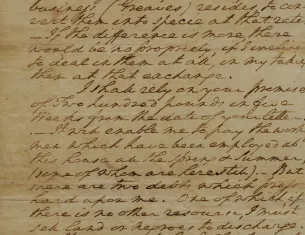 business (Greaves) resides, to con-
vert them into specie at that rate
— If the difference is more, there
would be no propriety, if I incline
to deal in them at all, in my taking
them at that exchange.
I shall rely on your promise
of Two hundred pounds in five
Weeks from the date of your letter.
— It will enable me to pay the work
men which have been employed ab
this house all the Spring & Summer
(some of whom are here still). But
there are two debts which press
hard upon me. One of which, if
there is no other resource, I must
sell land or negroes to discharge